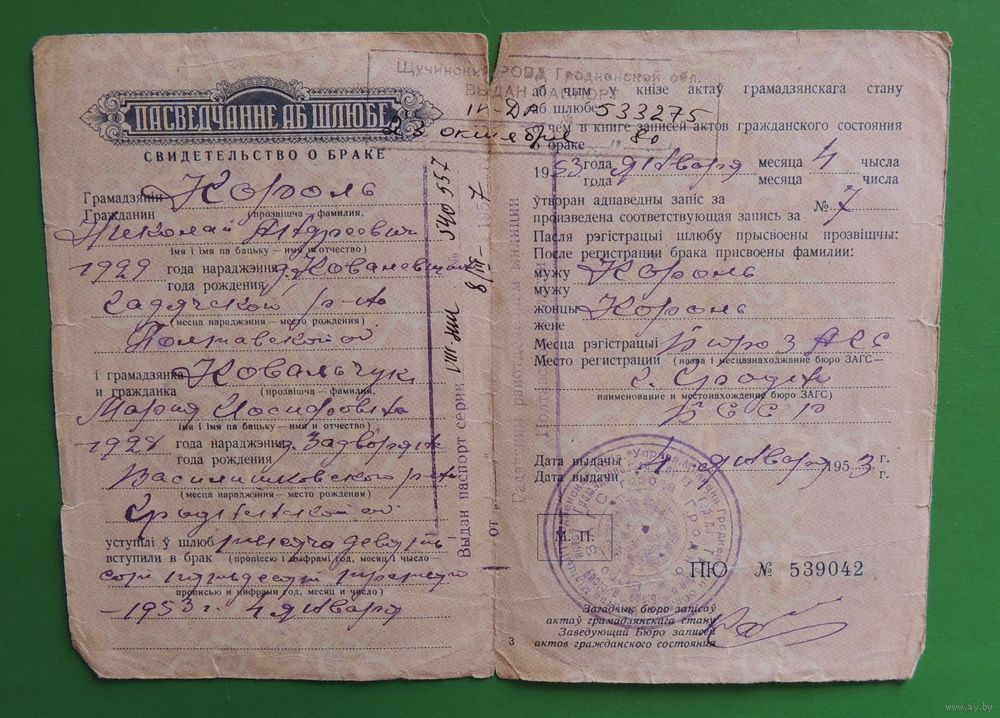 ПАСВЕДЧАННЕ АБ ШЛЮБЕ
СВИДЕТЕЛЬСТВО О БРАКЕ
Грамадзянін
Гражданин
Король
(прозвішча — фамилия,
Николай Андреевич
імя і імя па бацьку — имя и отчество)
1929 года нараджэння
года рождения
Гадячского р-на
(месца нараджэння — место рождения)
Полтавской об
і грамадзянка
и гражданка
Ковальчук
(прозвішча — фамилия,
Мария Иосифовна
імя і імя па бацьку — имя и отчество)
года нараджэння
года рождения
Василишковского р-на
(месца нараджэння — место рождения)
Гродненской об
уступілі ў шлюб тысяча девять
вступили в брак (прописсю і цыфрамі год, месяц і чысло
сот пятьдесят третьего
прописью и цифрами год, месяц и число)
1953 г. 4 января
Выдан паспорт серии VIII-ШП № 540557
от " " 8/III - 1957
Щучинским РОВД Гродненской обл.
ВЫДАН ПАСПОРТ
№ 533275
октября 19 80
аб чым у кнізе актаў грамадзянскага стану
аб шлюбе
о чем в книге записей актов гражданского состояния
о браке
1953 года января месяца 4 чысла
года месяца числа
ўтворан адпаведны запіс за
произведена соответствующая запись за
№ 7
Пасля рэгістрацыі шлюбу прысвоены прозвішчы:
После регистрации брака присвоены фамилии:
мужу Король
мужу
жонцы Король
жене
Месца рэгістрацыі Бюро ЗАГС
Место регистрации (назва і месцазнаходжанне бюро ЗАГС—
г. Гродно
наименование и местонахождение бюро ЗАГС)
БССР
Дата выдачы 4 января 1953 г.
Дата выдачи г.
М. П.
ПЮ № 539042
Загадчык бюро запісаў
актаў грамадзянскага стану
Заведующий Бюро записей
актов гражданского состояния
3
www.ay.by